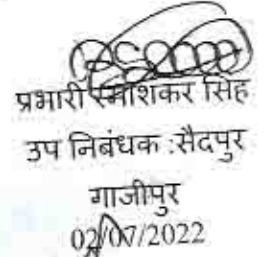 प्रभारी रमाशंकर सिंह
उप निबंधक :सैदपुर
गाजीपुर
02/07/2022